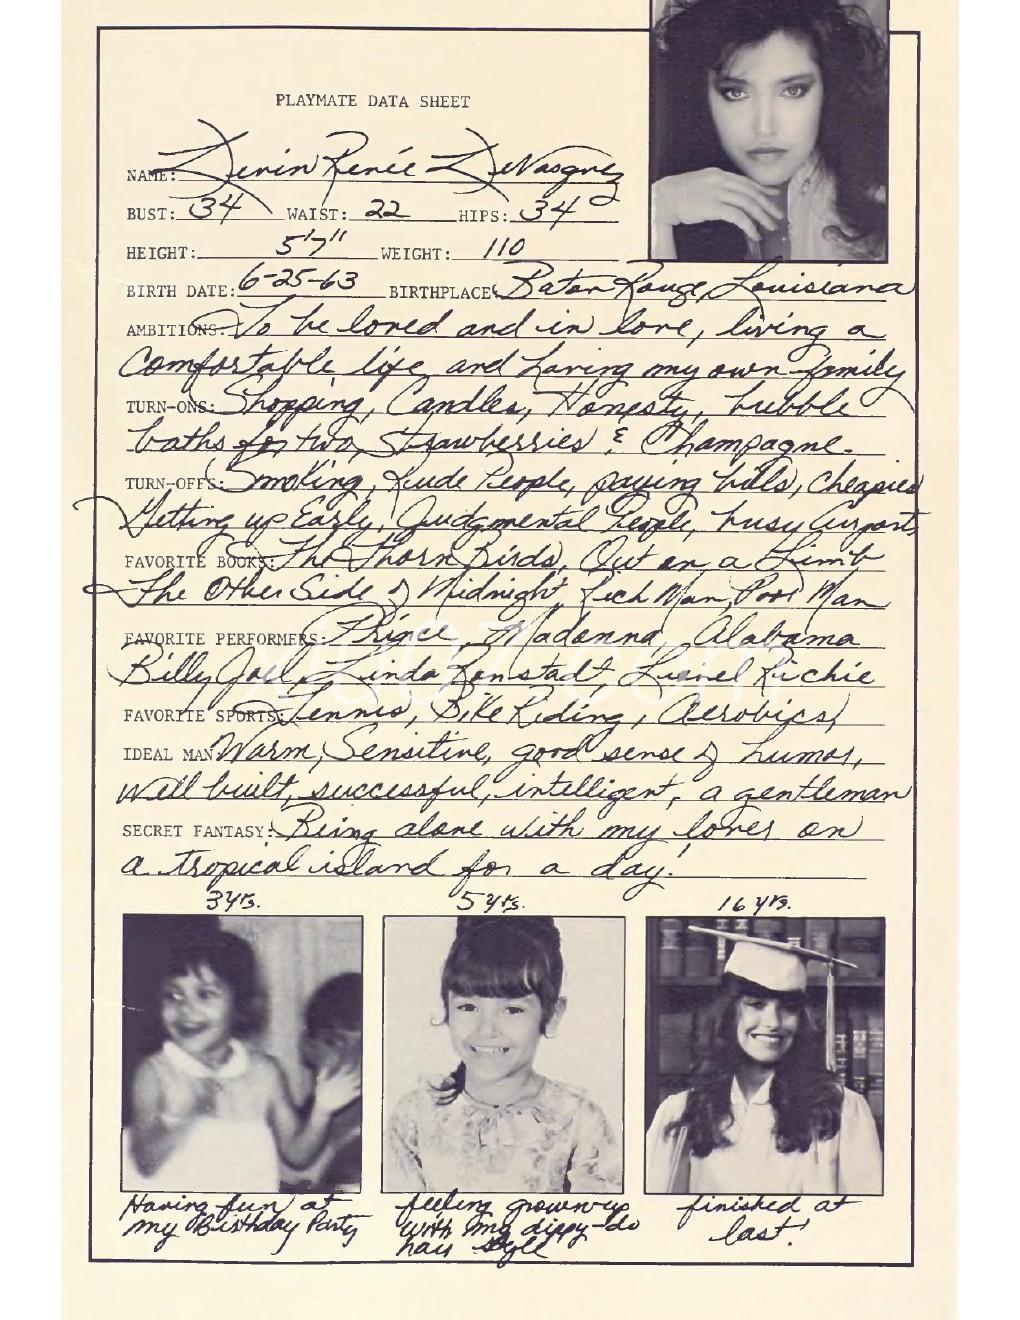 PLAYMATE DATA SHEET
NAME: Devin Reneé DeVasquez
BUST: 34 WAIST: 22 HIPS: 34
HEIGHT: 5'7" WEIGHT: 110
BIRTH DATE: 6-25-63 BIRTHPLACE: Baton Rouge, Louisiana
AMBITIONS: To be loved and in love, living a
comfortable life and having my own family
TURN-ONS: Shopping, Candles, Honesty, bubble
baths for two, strawberries & Champagne.
TURN-OFFS: Smoking, Rude People, paying bills, cheapies
Getting up Early, Judgmental People, busy airports
FAVORITE BOOKS: The Thorn Birds, Out on a Limb
The Other Side of Midnight, Rich Man, Poor Man
FAVORITE PERFORMERS: Prince, Madonna, Alabama
Billy Joel, Linda Ronstadt, Lionel Richie
FAVORITE SPORTS: Tennis, Bike Riding, Aerobics,
IDEAL MAN: Warm, Sensitive, good sense of humor,
well built, successful, intelligent, a gentleman
SECRET FANTASY: Being alone with my lover on
a tropical island for a day!
3 yrs. 5 yrs. 16 yrs.
Having fun at
my Birthday Party
feeling grown-up
with my dippy-do
hair style
finished at
last!